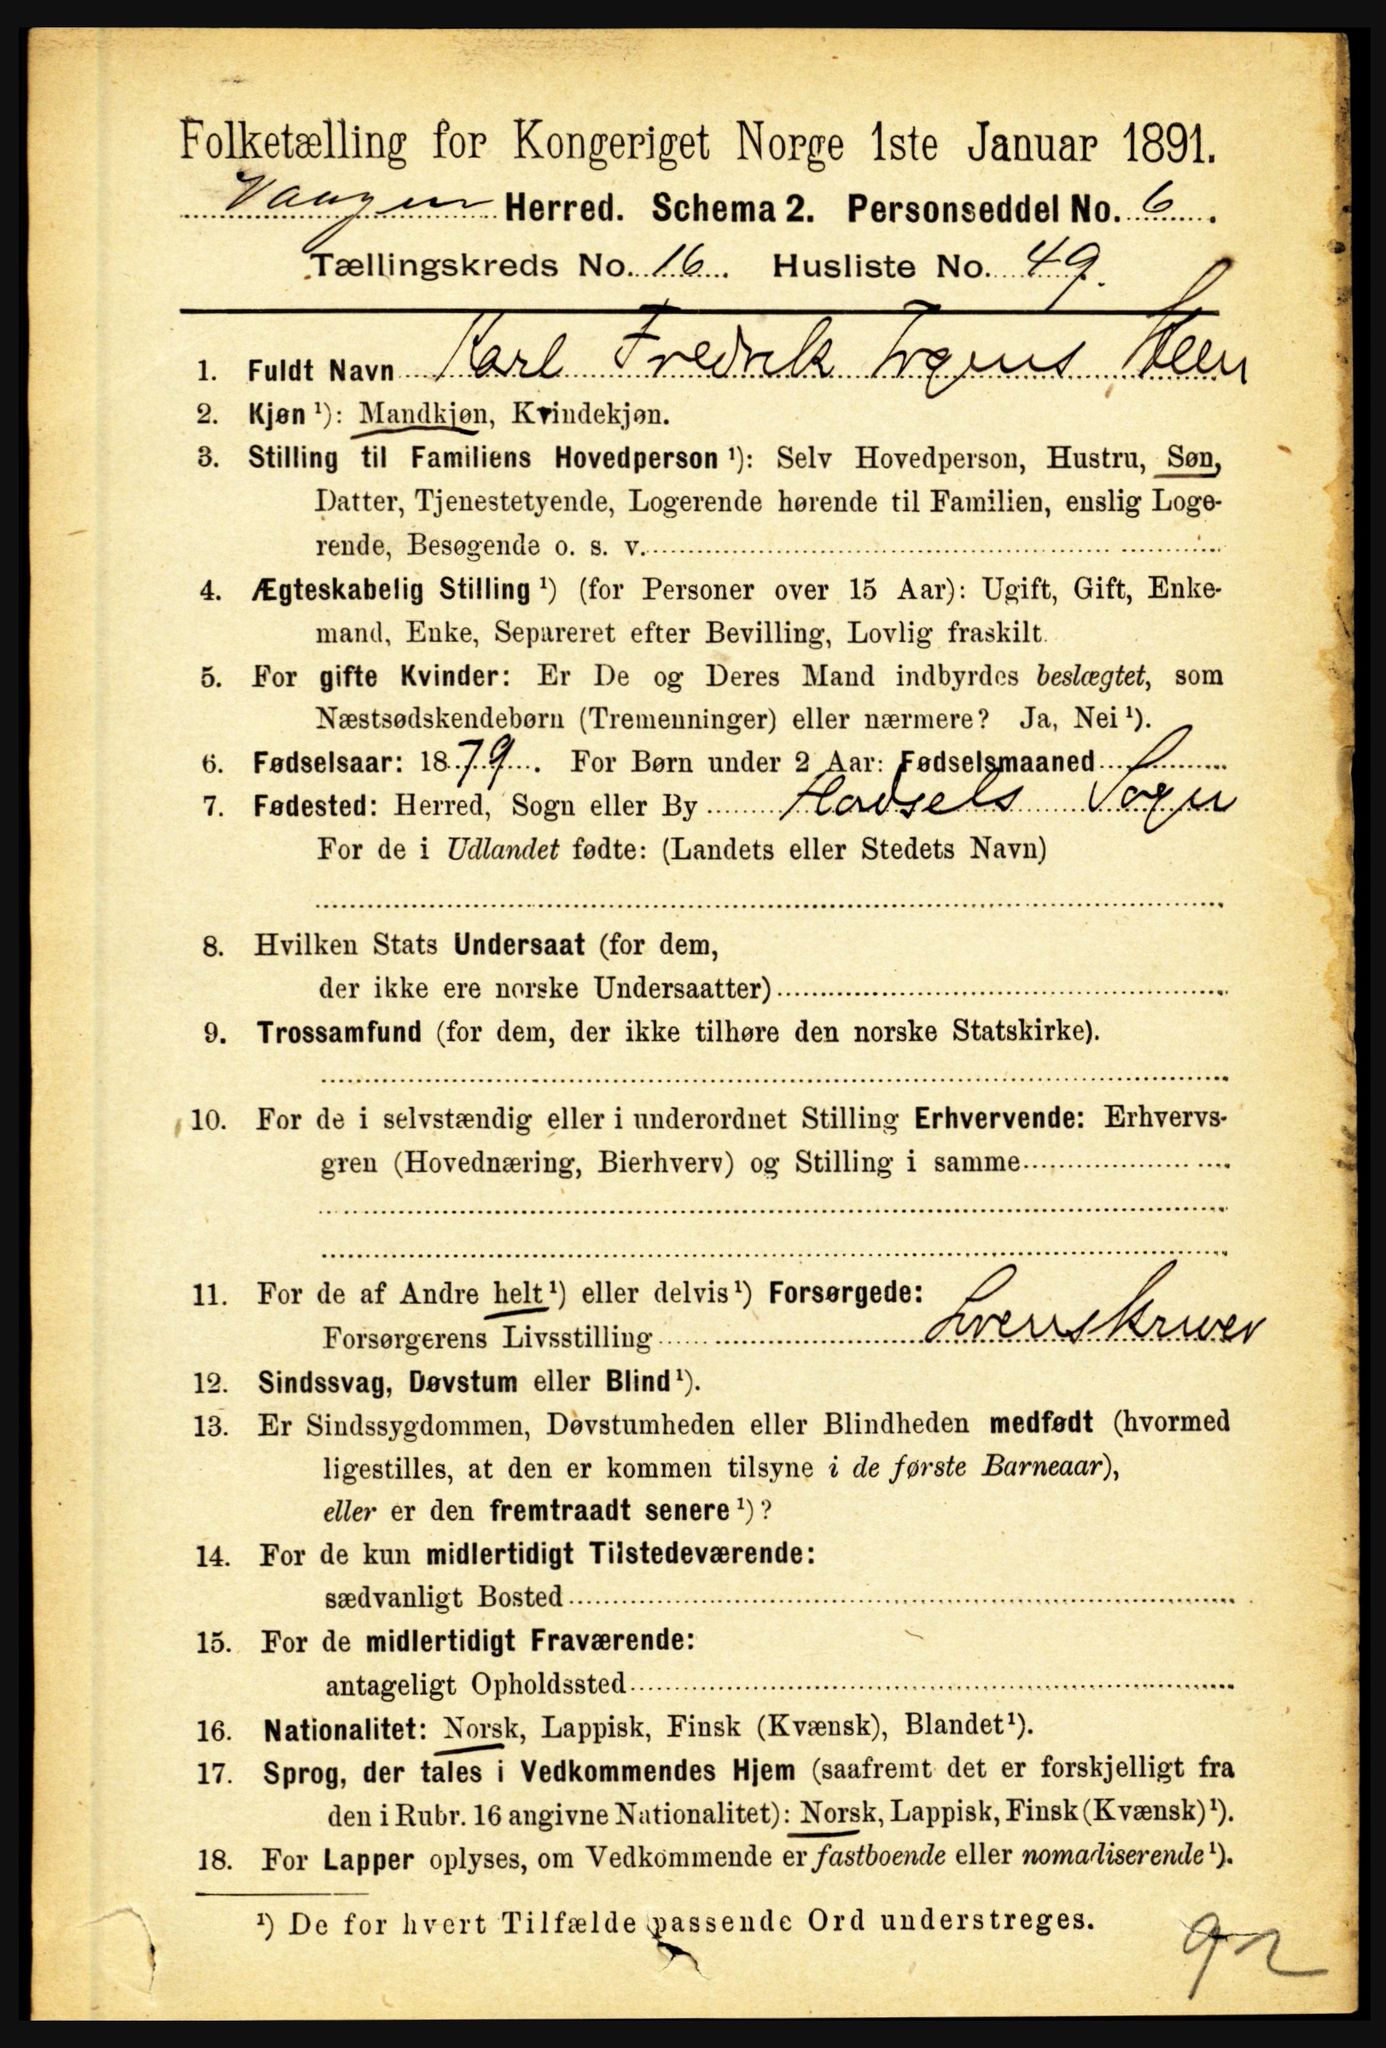 Folketælling for Kongeriget Norge 1ste Januar 1891.
Vaagen Herred. Schema 2. Personseddel No. 6.
Tællingskreds No. 16. Husliste No. 49.
1. Fuldt Navn Karl Fredrik Steen
2. Kjøn ¹): Mandkjøn, Kvindekjøn.
3. Stilling til Familiens Hovedperson ¹): Selv Hovedperson, Hustru, Søn,
Datter, Tjenestetyende, Logerende hørende til Familien, enslig Loge-
rende, Besøgende o. s. v.
4. Ægteskabelig Stilling ¹) (for Personer over 15 Aar): Ugift, Gift, Enke-
mand, Enke, Separeret efter Bevilling, Lovlig fraskilt.
5. For gifte Kvinder: Er De og Deres Mand indbyrdes beslægtet, som
Næstsødskendebørn (Tremenninger) eller nærmere? Ja, Nei ¹).
6. Fødselsaar: 1879. For Børn under 2 Aar: Fødselsmaaned
7. Fødested: Herred, Sogn eller By Hadsels Sogn
For de i Udlandet fødte: (Landets eller Stedets Navn)
8. Hvilken Stats Undersaat (for dem,
der ikke ere norske Undersaatter)
9. Trossamfund (for dem, der ikke tilhøre den norske Statskirke).
10. For de i selvstændig eller i underordnet Stilling Erhvervende: Erhvervs-
gren (Hovednæring, Bierhverv) og Stilling i samme
11. For de af Andre helt ¹) eller delvis ¹) Forsørgede:
Forsørgerens Livsstilling
12. Sindssvag, Døvstum eller Blind ¹).
13. Er Sindssygdommen, Døvstumheden eller Blindheden medfødt (hvormed
ligestilles, at den er kommen tilsyne i de første Barneaar),
eller er den fremtraadt senere ¹)?
14. For de kun midlertidigt Tilstedeværende:
sædvanligt Bosted
15. For de midlertidigt Fraværende:
antageligt Opholdssted
16. Nationalitet: Norsk, Lappisk, Finsk (Kvænsk), Blandet ¹).
17. Sprog, der tales i Vedkommendes Hjem (saafremt det er forskjelligt fra
den i Rubr. 16 angivne Nationalitet): Norsk, Lappisk, Finsk (Kvænsk) ¹).
18. For Lapper oplyses, om Vedkommende er fastboende eller nomadiserende ¹).
¹) De for hvert Tilfælde passende Ord understreges.